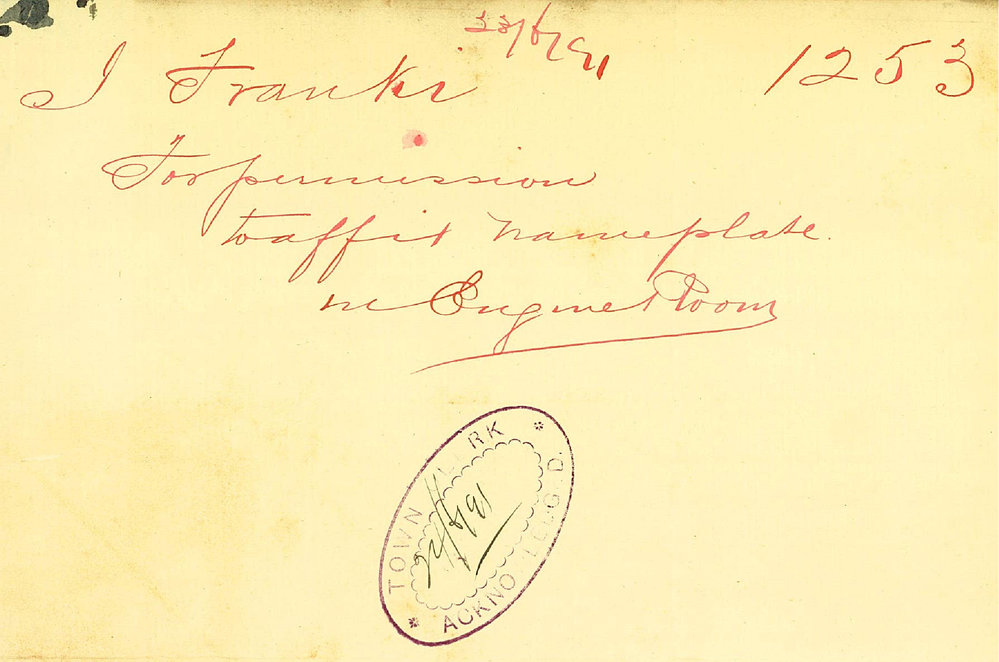 23/6/91
J Franki 1253
For permission
to affix nameplate
in Engine Room
TOWN CLERK
24/6/91
ACKNOWLEDGED.